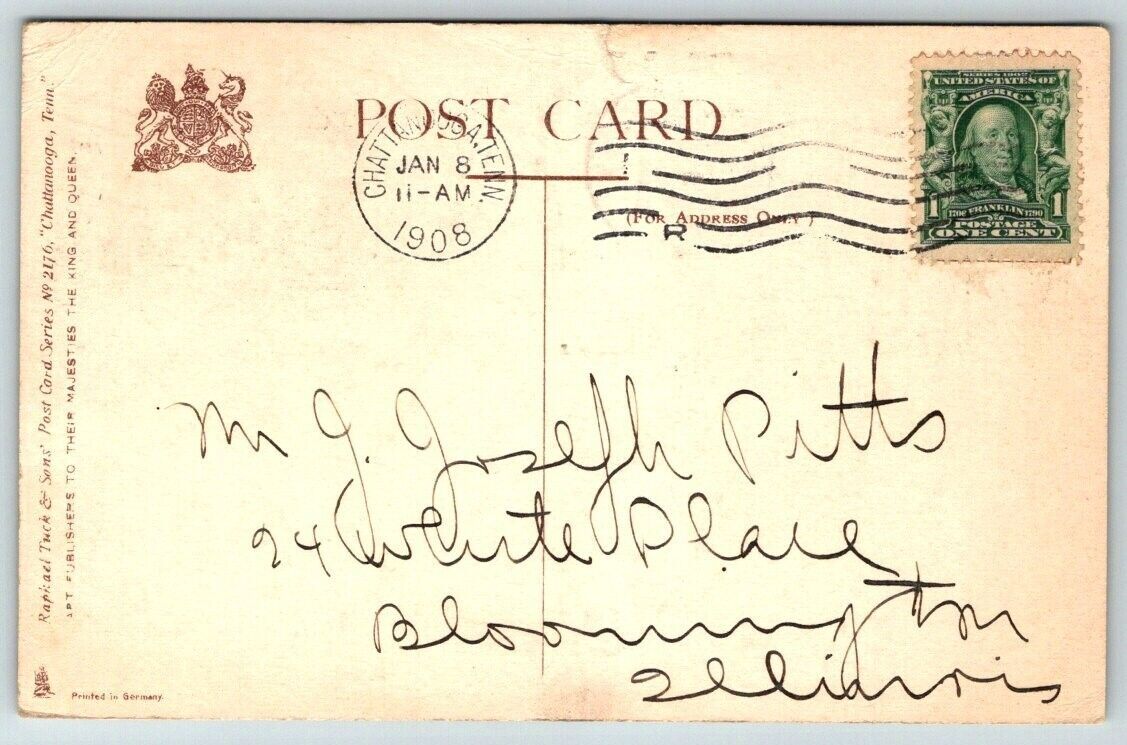 POST CARD
CHATTANOOGA, TENN.
JAN 8
11-AM
1908
(FOR ADDRESS ONLY)
R
SERIES 1902
UNITED STATES OF
AMERICA
1 1706 FRANKLIN 1790 1
POSTAGE
ONE CENT
Raphael Tuck & Sons' Post Card Series No 2176, "Chattanooga, Tenn."
ART PUBLISHERS TO THEIR MAJESTIES THE KING AND QUEEN.
Mr J. Joseph Pitts
24 White Place
Bloomington
Illinois
Printed in Germany.